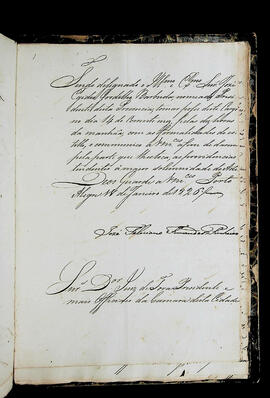 Tendo designado o Illmo e Exmo Snr José
Egidio Gordilho Barbuda, nomeado Presi
dente desta Provincia, tomar posse deste Cargo
no dia 14 do Corrente mez, pelas dez horas
da manhãa, com as formalidades do es
tillo, o communico a Vmces afim de darem
pela parte que lhes toca, as providencias
tendentes á maior solemnidade do Acto.
Deos Guarde a Vmces Porto
Alegre de Janeiro de 1826
José Feliciano Fernandes Pinheiro
Snr Dor Juiz de Fora Presidente e
mais Officiaes da Camara desta Cidade